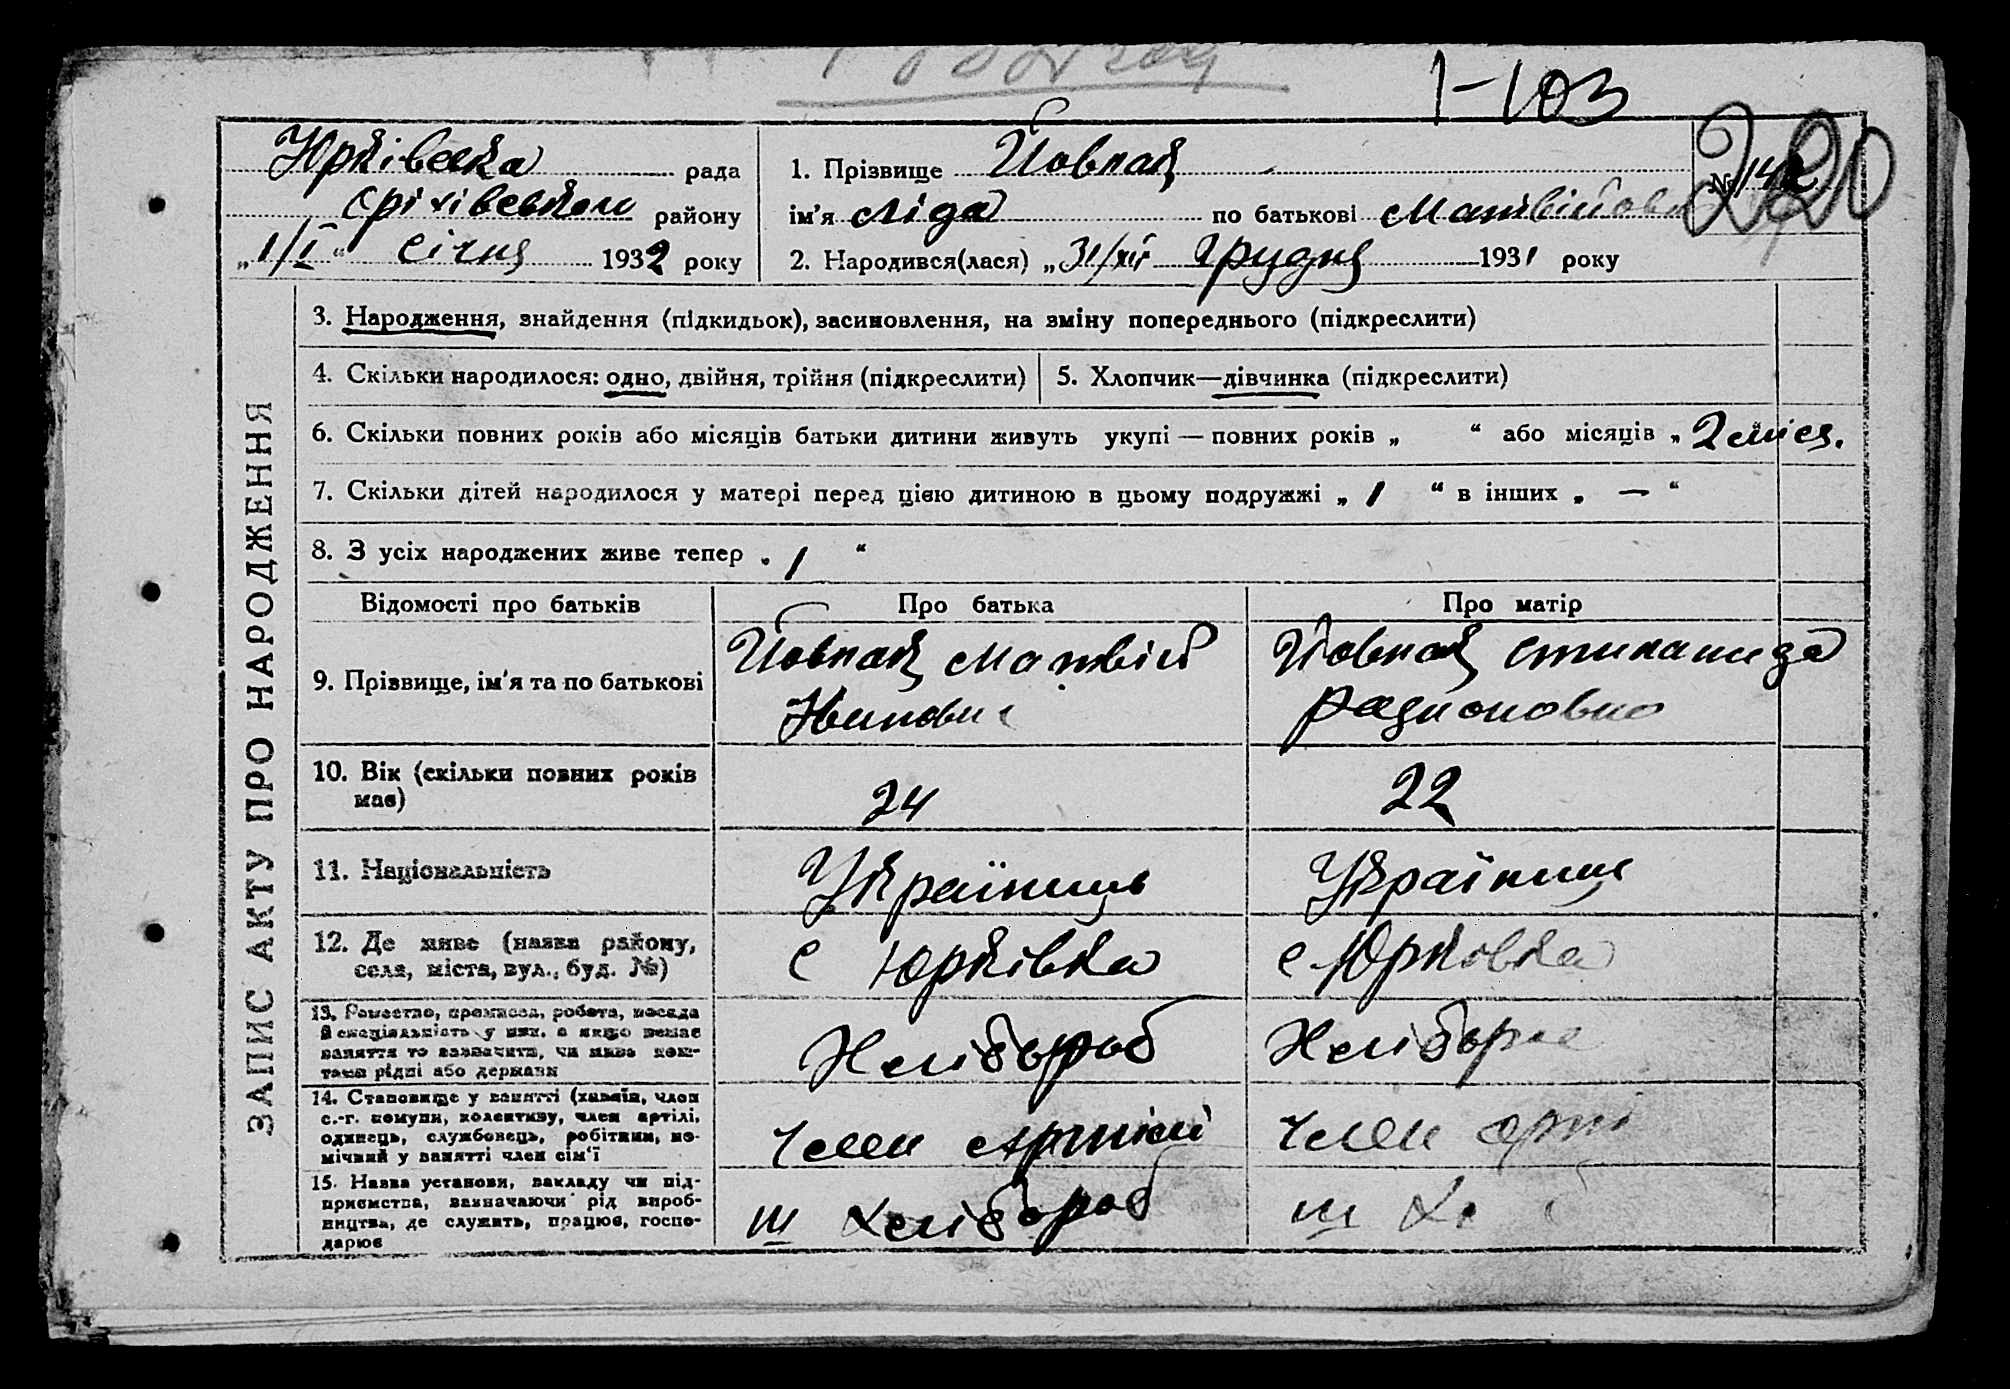 1-103
220
Юрківська рада
Оріхівського району
„1/I“ Січня 1932 року
1. Прізвище Йовпак
№ 142
ім'я Ліда по батькові Матвійовна
2. Народився(лася) „31/XII Грудня 1931 року
ЗАПИС АКТУ ПРО НАРОДЖЕННЯ
3. Народження, знайдення (підкидьок), засиновлення, на зміну попереднього (підкреслити)
4. Скільки народилося: одно, двійня, трійня (підкреслити) 5. Хлопчик—дівчинка (підкреслити)
6. Скільки повних років або місяців батьки дитини живуть укупі — повних років „ “ або місяців „ 2 міся.
7. Скільки дітей народилося у матері перед цією дитиною в цьому подружжі „ 1 “ в інших „ — “
8. З усіх народжених живе тепер „ 1 “
Відомості про батьків Про батька Про матір
9. Прізвище, ім'я та по батькові
Йовпак Матвій
Иванович
Йовпак Стипанида
Радионовно
10. Вік (скільки повних років має) 24 22
11. Національність Українець Українка
12. Де живе (назва району, села, міста, вул., буд. №) с Юрківка с Юрковка
13. Ремество, промисел, робота, посада й спеціяльність у них, а якщо немає заняття то зазначити, чи живе коштами рідні або держави
Хлібороб Хлібороб
14. Становище у занятті (хазяїн, член с.-г. комуни, колективу, член артілі, одинець, службовець, робітник, помічний у занятті член сім'ї
член артілі член арті
15. Назва установи, закладу чи підприємства, зазначаючи рід виробництва, де служить, працює, господарює
ш хлібороб ш